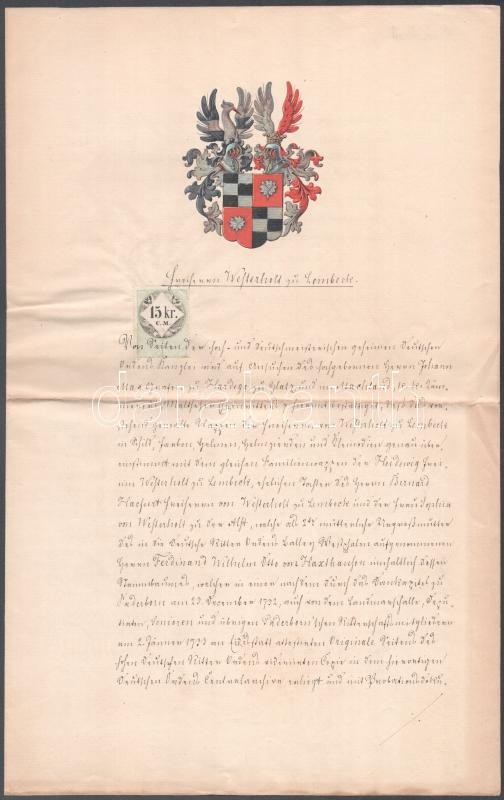 Freiherrn Westerholt zu Lembeck.
15 kr.
C.M.
Von Seiten der hoch- und deutschmeisterischen geheimen Deutschen
Ordens Kanzlei wird auf Ansuchen des hochgebornen Herrn Johann
Max Grafen zu Hardegg zu Glatz und im Machlande, k. k. Käm-
gemalte Wappen der Freiherren von Westerholt zu Lembeck
in Schild, Farben, Helmen, Helmzierden und Kleinodien genau über,
einstimmt mit dem gleichen Familienwappen der Hedewig Frei-
in Westerholt zu Lembeck, ehelichen Tochter des Herrn Bernard
Hackfurt Freiherrn von Westerholt zu Lembeck und der Frau Sophia
von Westerholt zu der Alst, welche als 2te mütterliche Urgroßmutter
des in die Deutsche Ritter Ordens Balley Westphalen aufgenommenen
Herrn Ferdinand Wilhelm Otto von Haxthausen inhaltlich dessen
Stammbaumes, welcher in einer nach dem durch das Domkapitel zu
Paderborn am 23. Dezember 1732, auch von dem Landmarschalle, Depu-
tirten, Senioren und übrigen Paderborn'schen Ritterschafts-Mitgliedern
am 2. Jänner 1733 attestirten Originale Seitens des
hohen Deutschen Ritter Ordens vidimirten Copie in dem hierortigen
Deutschen Ordens Centralarchive erliegt und mit Probations Doku-
darabanth